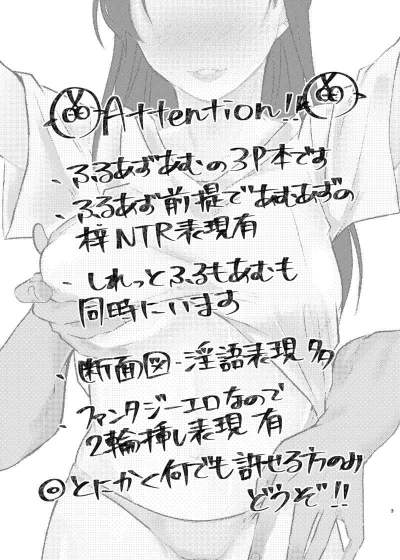 Attention!!
・ふるあずあむの3P本です
・ふるあず前提であむあずの
梓NTR表現有
・しれっとふるもあむも
同時にいます
・断面図・淫語表現多タ
・ファンタジーエロなので
2輪挿し表現有
◎とにかく何でも許せる方のみ
どうぞ!!
3